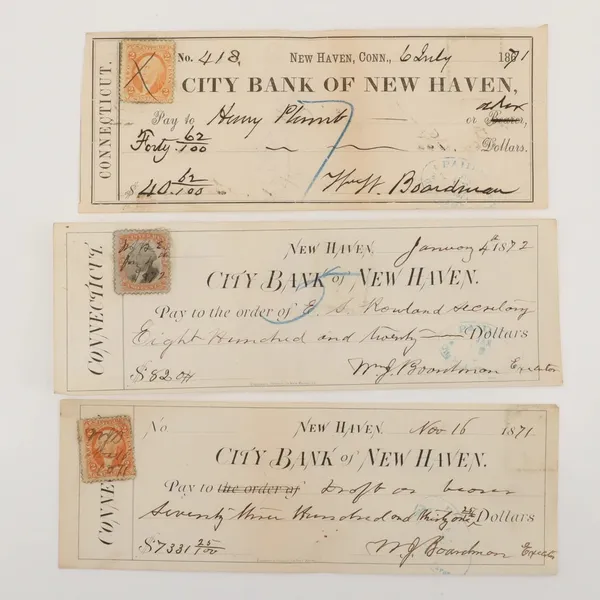 CONNECTICUT.
No. 418, NEW HAVEN, CONN., 6 July 1871
CITY BANK OF NEW HAVEN,
Pay to Henry Plumb or order Bearer,
Forty 62/100 Dollars.
$40 62/100 Wm W. Boardman
7
CONNECTICUT.
NEW HAVEN. January 4th 1872
CITY BANK of NEW HAVEN.
Pay to the order of E. S. Rowland Secretary
Eight Hundred and twenty Dollars
$820 Wm J. Boardman Executor
5
CONNE
No. NEW HAVEN. Nov 16 1871.
CITY BANK of NEW HAVEN.
Pay to the order of Draft or bearer
Seventy three Hundred and thirty one 25/100 Dollars
$7331 25/100 W. J. Boardman Executor